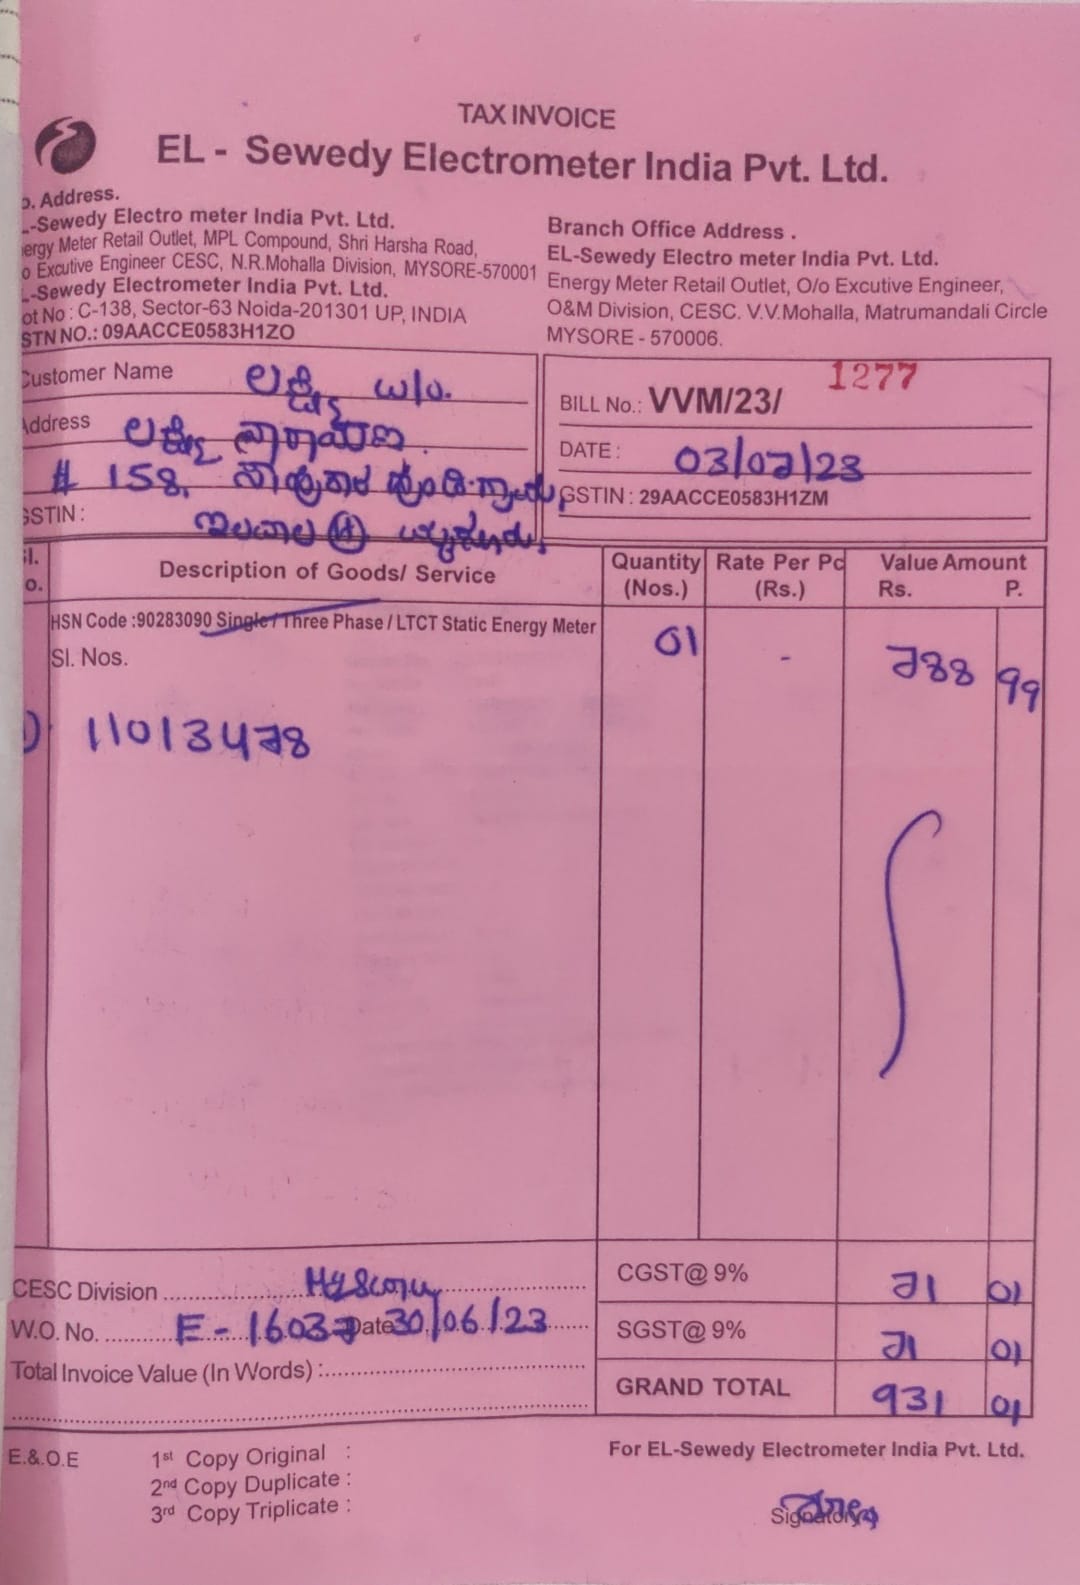 TAX INVOICE
EL - Sewedy Electrometer India Pvt. Ltd.
o. Address.
-Sewedy Electro meter India Pvt. Ltd.
ergy Meter Retail Outlet, MPL Compound, Shri Harsha Road,
o Excutive Engineer CESC, N.R.Mohalla Division, MYSORE-570001
-Sewedy Electrometer India Pvt. Ltd.
ot No : C-138, Sector-63 Noida-201301 UP, INDIA
STN NO.: 09AACCE0583H1ZO
Branch Office Address .
EL-Sewedy Electro meter India Pvt. Ltd.
Energy Meter Retail Outlet, O/o Excutive Engineer,
O&M Division, CESC. V.V.Mohalla, Matrumandali Circle
MYSORE - 570006.
Customer Name ಲಕ್ಷ್ಮಿ w/o.
Address ಲಕ್ಷ್ಮಿ ನಾರಾಯಣ
# 158,
GSTIN :
BILL No.: VVM/23/ 1277
DATE : 03/07/23
GSTIN : 29AACCE0583H1ZM
Sl. o. Description of Goods/ Service Quantity (Nos.) Rate Per Pc (Rs.) Value Amount Rs. P.
HSN Code :90283090 Single / Three Phase / LTCT Static Energy Meter 01 - 788 99
Sl. Nos.
1) 11013478
CESC Division Mysore
W.O. No. E - 16037 Date 30/06/23
Total Invoice Value (In Words) :
CGST@ 9% 71 01
SGST@ 9% 71 01
GRAND TOTAL 931 01
E.&.O.E
1st Copy Original :
2nd Copy Duplicate :
3rd Copy Triplicate :
For EL-Sewedy Electrometer India Pvt. Ltd.
Signatory